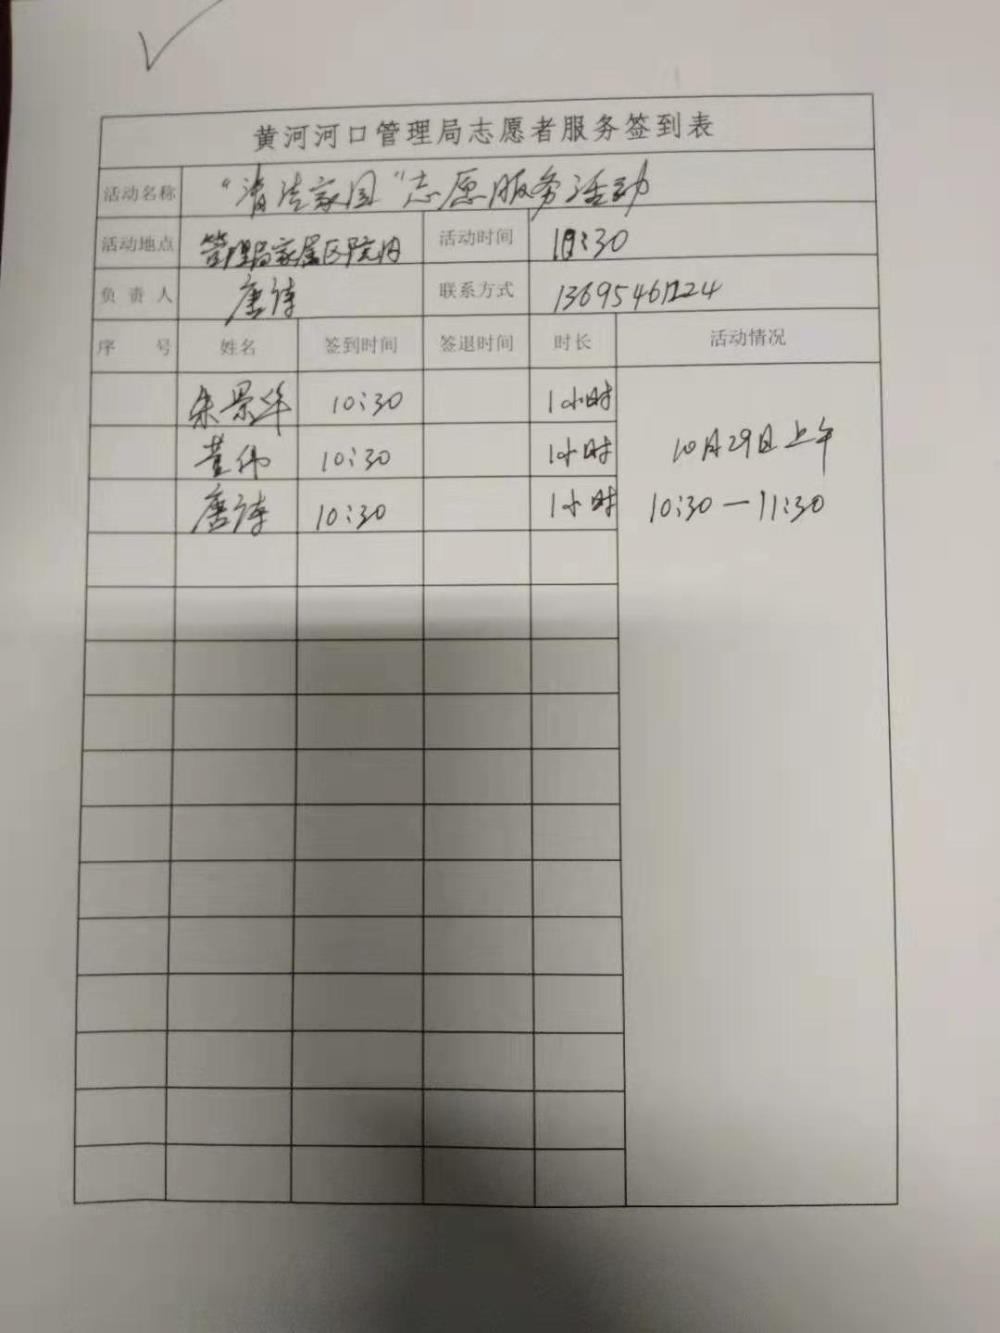 黄河河口管理局志愿者服务签到表
活动名称 "清洁家园"志愿服务活动
活动地点 管理局家属区院内 活动时间 10:30
负责人 唐涛 联系方式
序号 姓名 签到时间 签退时间 时长 活动情况
朱景华 10:30 1小时
董伟 10:30 1小时 10月29日上午
唐涛 10:30 1小时 10:30—11:30